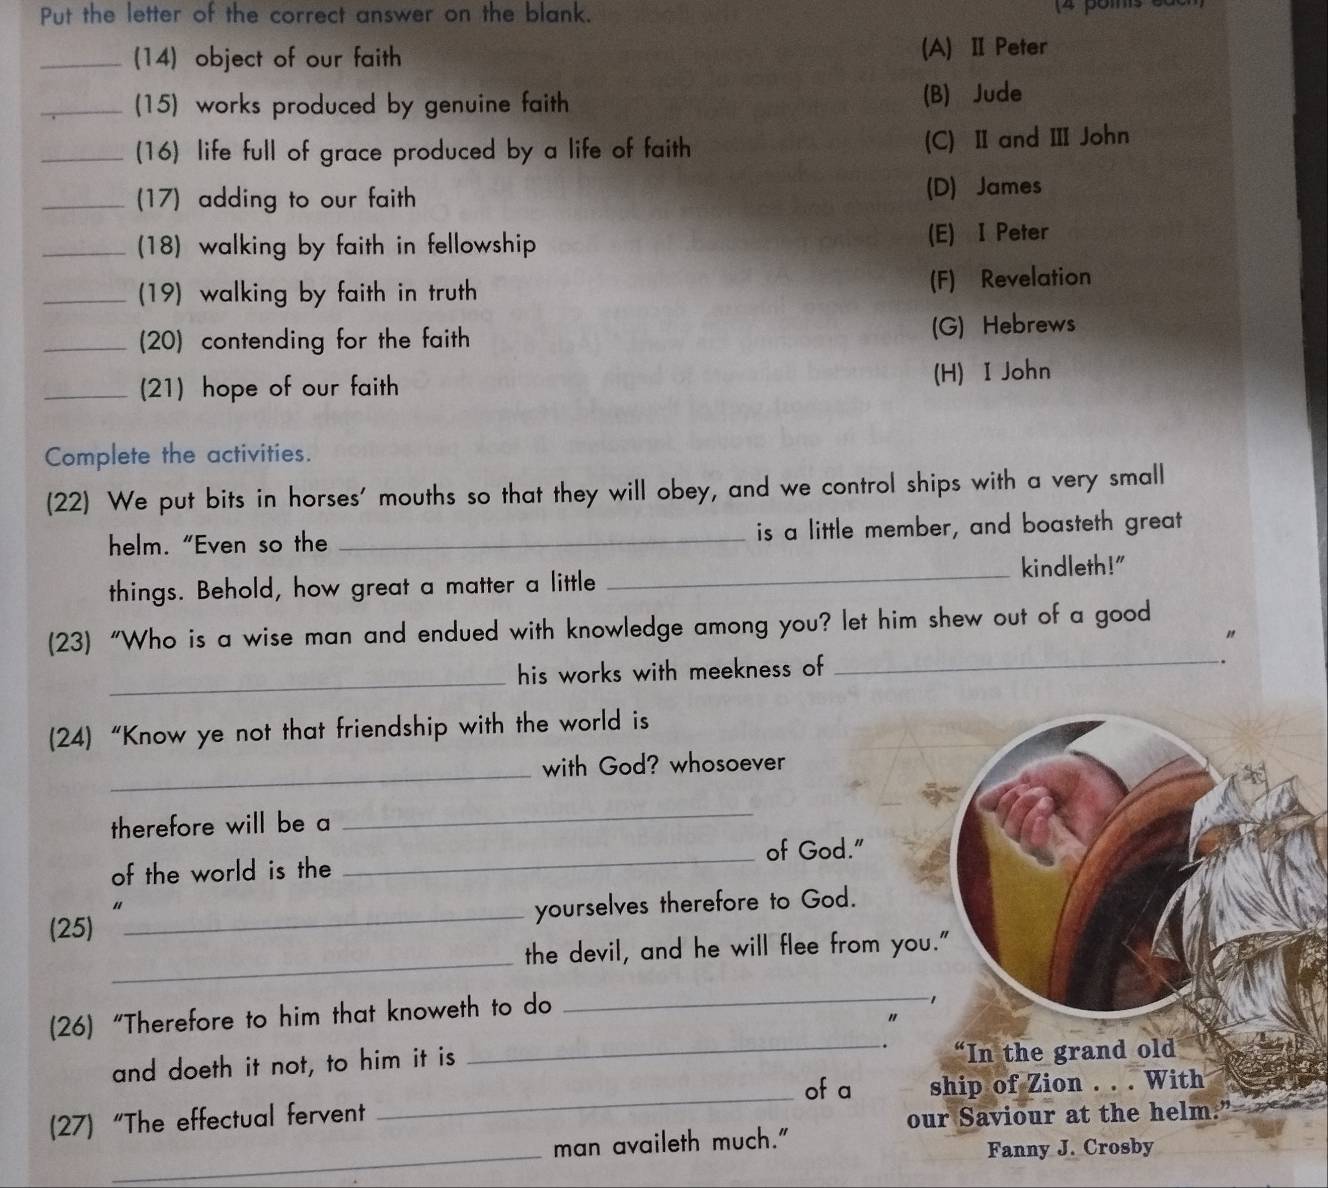 Put the letter of the correct answer on the blank.
(4 points each)
______ (14) object of our faith
(A) II Peter
______ (15) works produced by genuine faith
(B) Jude
______ (16) life full of grace produced by a life of faith
(C) II and III John
______ (17) adding to our faith
(D) James
______ (18) walking by faith in fellowship
(E) I Peter
______ (19) walking by faith in truth
(F) Revelation
______ (20) contending for the faith
(G) Hebrews
______ (21) hope of our faith
(H) I John
Complete the activities.
(22) We put bits in horses' mouths so that they will obey, and we control ships with a very small
helm. "Even so the ______ is a little member, and boasteth great
things. Behold, how great a matter a little ______ kindleth!"
(23) "Who is a wise man and endued with knowledge among you? let him shew out of a good
______ his works with meekness of ______."
(24) "Know ye not that friendship with the world is
______ with God? whosoever
therefore will be a ______
of the world is the ______ of God."
(25) "______ yourselves therefore to God.
______ the devil, and he will flee from you."
(26) "Therefore to him that knoweth to do ______,
and doeth it not, to him it is ______."
(27) "The effectual fervent ______ of a
______ man availeth much."
"In the grand old
ship of Zion . . . With
our Saviour at the helm."
Fanny J. Crosby